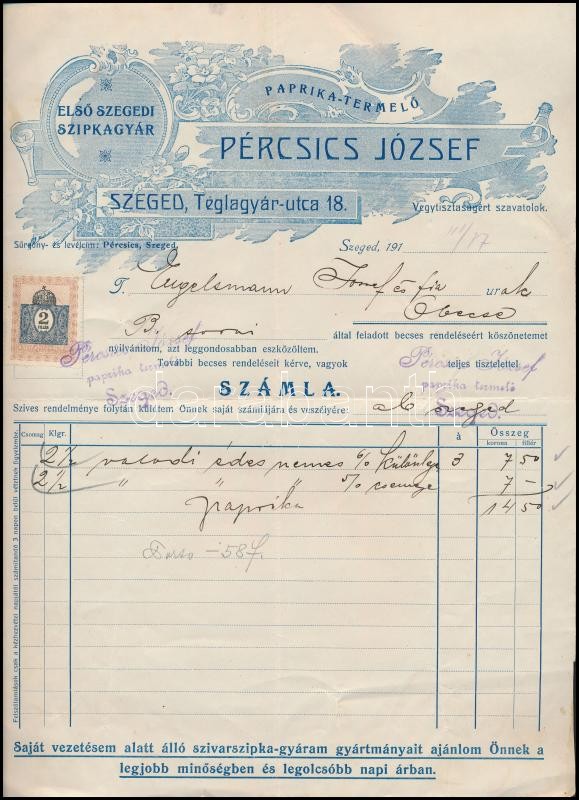 ELSŐ SZEGEDI
SZIPKAGYÁR
PAPRIKA-TERMELŐ
PÉRCSICS JÓZSEF
SZEGED, Téglagyár-utca 18.
Vegytisztaságért szavatolok.
Sürgöny- és levélcím: Pércsics, Szeged.
Szeged, 191
T. Engelsmann József és fia urak
Óbecse
2
B. soraival
által feladott becses rendeléseért köszönetemet
nyilvánitom, azt leggondosabban eszközöltem.
További becses rendeléseit kérve, vagyok
teljes tisztelettel
Pércsics József
paprika termelő
Szeged.
Pércsics József
paprika termelő
Szeged.
SZÁMLA.
Szives rendelménye folytán küldtem Önnek saját számlájára és veszélyére: ab Szeged
darabanth
Csomag Klgr. à Összeg
korona fillér
2½ valódi édes nemes 3 7 50
2½ " " " csemege 7 –
paprika 14 50
Porto –58 f.
Felszólamlások csak a kézhezvétel napjától számítandó 3 napon belül vétetnek figyelembe.
Saját vezetésem alatt álló szivarszipka-gyáram gyártmányait ajánlom Önnek a
legjobb minőségben és legolcsóbb napi árban.